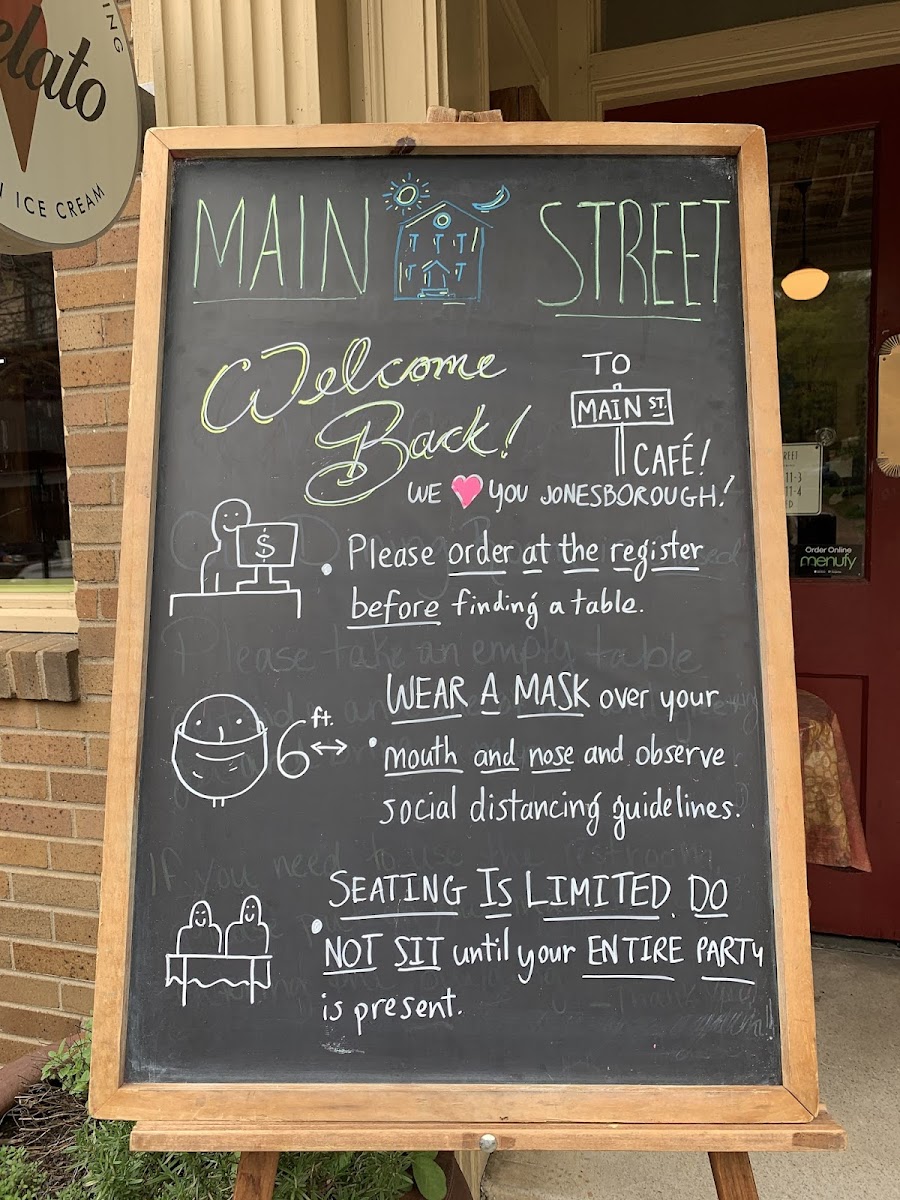 elato
ICE CREAM
MAIN STREET
Welcome
Back!
TO
MAIN ST.
CAFÉ!
WE YOU JONESBOROUGH!
$
• Please order at the register
before finding a table.
Please take an empty table
WEAR A MASK over your
6 ft.
• mouth and nose and observe
social distancing guidelines.
If you need to use the restroom
SEATING IS LIMITED. DO
• NOT SIT until your ENTIRE PARTY
is present.
Thank you
Order Online
menufy